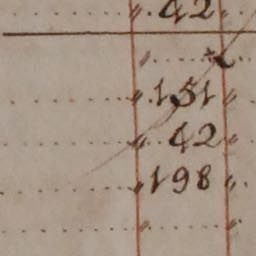 42
151
42
198